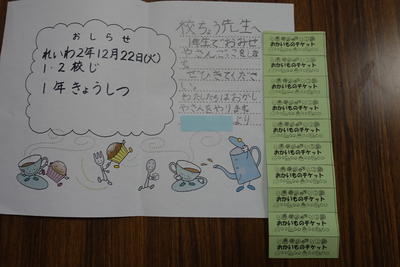 おしらせ
れいわ2年12月22日(火)
1・2校じ
1年きょうしつ
校ちょう先生へ
1年生でおみせ
やさんごっこをします
ぜひきてくださ
い。
わたしたちはおかし
やさんをやります。
より
おかいものチケット
おかいものチケット
おかいものチケット
おかいものチケット
おかいものチケット
おかいものチケット
おかいものチケット
おかいものチケット
おかいものチケット
おかいものチケット